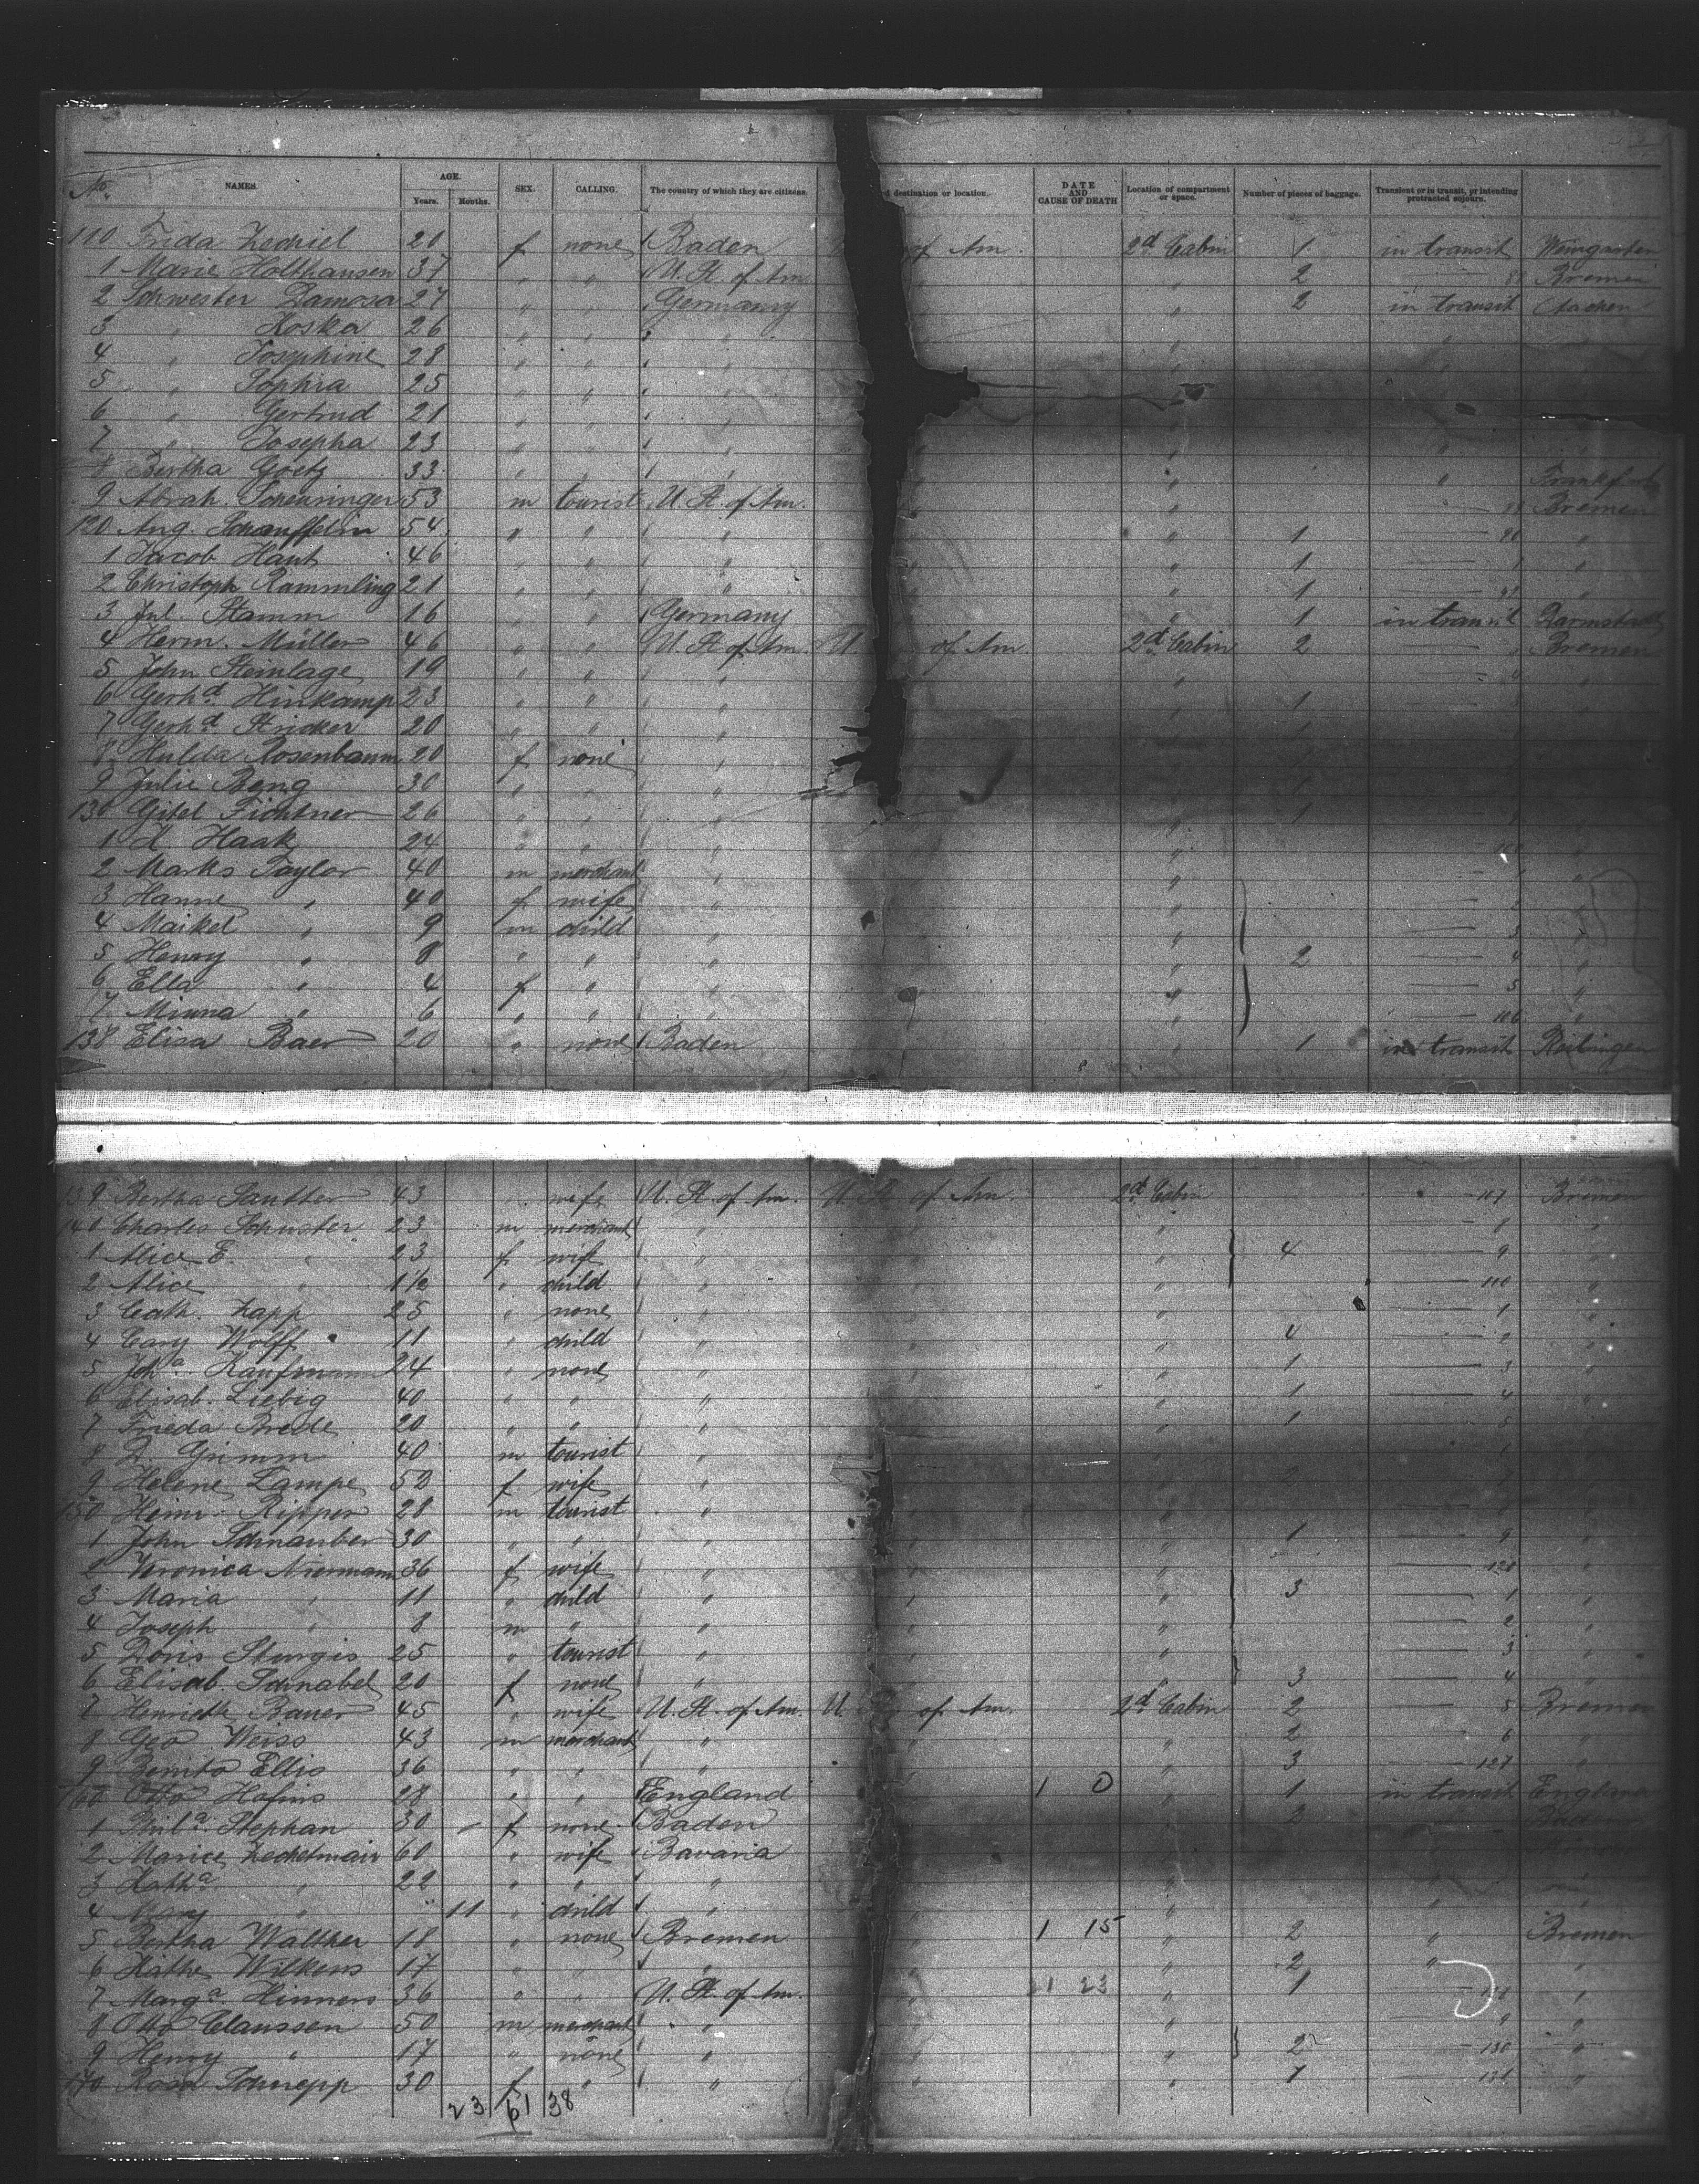 No. NAMES. AGE. Years. Months. SEX. CALLING. The country of which they are citizens. d destination or location. DATE AND CAUSE OF DEATH Location of compartment or space. Number of pieces of baggage. Transient or in transit, or intending protracted sojourn.
110 Frida Zechiel 20 f none Baden of Am. 2d Cabin 1 in transit Weingarten
1 Marie Holthausen 37 " " U. St. of Am. " 2 Bremen
2 Schwester Damosa 27 " " Germany " 2 in transit Aachen
3 " Koska 26 " " "
4 " Josephine 28 " " "
5 " Sophia 25 " " "
6 " Gertrud 21 " " "
7 " Josepha 23 " " "
8 Bertha Goetz 33 " " " " " Frankfurt
9 Abrah. Scheuringer 53 m tourist U. St. of Am. " Bremen
120 Aug. Schauffelin 54 " " " " 1 "
1 Jacob Haut 46 " " " " 1 "
2 Christoph Rammling 21 " " " " 1 "
3 Jul. Stamm 16 " " Germany " 1 in transit Darmstadt
4 Herm. Müller 46 " " U. St. of Am. U. of Am. 2d Cabin 2 Bremen
5 John Steinlage 19 " " " "
6 Gerhd. Hinkamp 23 " " " " 1
7 Gerhd. Stricker 20 " " "
8 Hulda Rosenbaum 20 f none "
9 Julie Beng 30 " " " 1
130 Gitel Fichtner 26 " " " " 1
1 H. Haak 24 " " " " "
2 Marks Taylor 40 m merchant " " "
3 Hanne " 40 f wife " " 2 "
4 Maikel " 9 m child " " 3 "
5 Henry " 8 " " " " 2 4 "
6 Ella " 4 f " " " 5 "
7 Minna " 6 " " " " 106 "
138 Elisa Baer 20 " none Baden " 1 in transit Reilingen
139 Bertha Sautter 43 " wife U. St. of Am. U. St. of Am. 2d Cabin 107 Bremen
140 Charles Schuster 23 m merchant " " 8 "
1 Alice E. " 23 f wife " " 4 9 "
2 Alice " 1 1/2 " child " " 110 "
3 Cath. Zapp 25 " none " " 1 "
4 Cary Wolff 11 " child " " 4 2 "
5 Joha. Kaufmann 24 " none " " 1 3 "
6 Elisab. Liebig 40 " " " " 1 4 "
7 Frieda Brede 20 " " " " 1 5
8 D. Grimm 40 m tourist "
9 Helene Lampe 52 f wife "
150 Heinr. Ripper 28 m tourist "
1 John Schnauber 30 " " " " 1 9 "
2 Veronica Niermann 36 f wife " " 120 "
3 Maria " 11 " child " " 3 1 "
4 Joseph " 8 m " " " 2 "
5 Doris Sturgis 25 " tourist " " 3 "
6 Elisab. Schnabel 20 f none " " 3 4 "
7 Henriette Bauer 45 " wife U. St. of Am. U. of Am. 2d Cabin 2 5 Bremen
8 Geo Weiss 43 m merchant " " 2 6 "
9 Benito Ellis 36 " " " " 3 127 "
160 Otto Hafins 28 " " England 1 0 " 1 in transit England
1 Phila. Stephan 30 f none Baden 2 Baden
2 Marie Zechetmair 60 " wife Bavaria
3 Katha. " 22 " " "
4 Mary " 11 " child "
5 Bertha Walther 18 " none Bremen 1 15 " 2 " Bremen
6 Kathe Wilkens 17 " " " " 2 " "
7 Marga. Hinners 36 " " U. St. of Am. 1 23 " 1 "
8 Otto Claussen 50 m merchant " " 9 "
9 Henry " 17 " none " " 2 130 "
170 Rosa Schnepp 30 f " " " 1 131 "
23 61 38